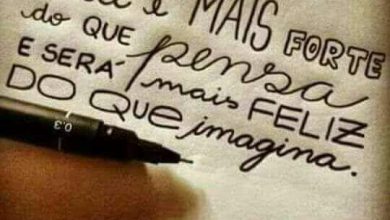 é MAIS FORTE
do QUE pensa
E SERÁ mais FELIZ
DO QUE imagina.
0.3